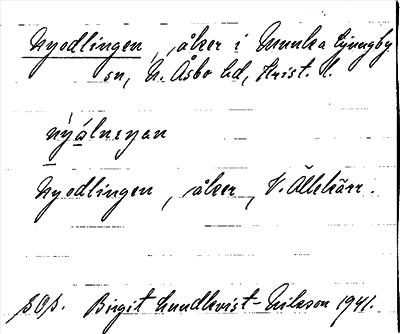 Nyodlingen, åker i Munka Ljungby
sn, N. Åsbo hd, Krist. l.
nýálneyan
Nyodlingen, åker, V. Ällekärr.
SOS. Birgit Lundkvist-Nilsson 1941.